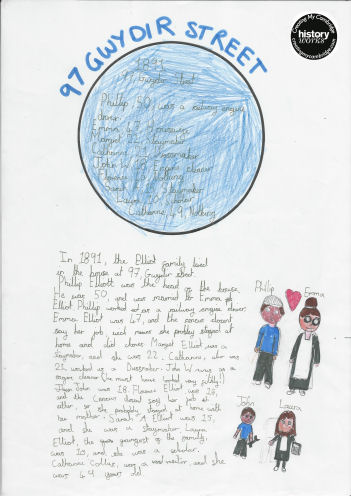 Creating My Cambridge
history
works
creatingmycambridge.com
97 GWYDIR STREET
1891
97, Gwydir Street
Phillip 50, was a railway engine
driver
Emma, 47, Housewife
Margret 22, Staymaker
Catharine 21, Dressmaker
John W 18, Engine cleaner
Florence 16 Nothing
Sarah E 15, Staymaker
Laura 10, Scholar
Catharine, 49, Nothing
In 1891, the Elliot family lived
in the house at 97, Gwydir street.
Phillip Elliott was the head of the house.
He was 50, and was married to Emma
Elliot. Phillip worked as a railway engine driver.
Emma Elliot was 47, and the census doesnt
say her job, she probably stayed at
home and did chores. Margret Elliot was a
Staymaker, and she was 22. Catharine, who was
21, worked as a Dressmaker. John W was an
engine cleaner (he must have looked very filthy!)
John was 18. Florence Elliot was 16,
and the Census doesnt say her job
either, so she probably stayed at home with
her mother. Sarah A Elliot was 15,
and she was a staymaker. Laura
Elliot, the youngest of the family,
was 10, and she was a scholar.
Catharine was a and she
was 49 years old.
Philip
Emma
John
Laura